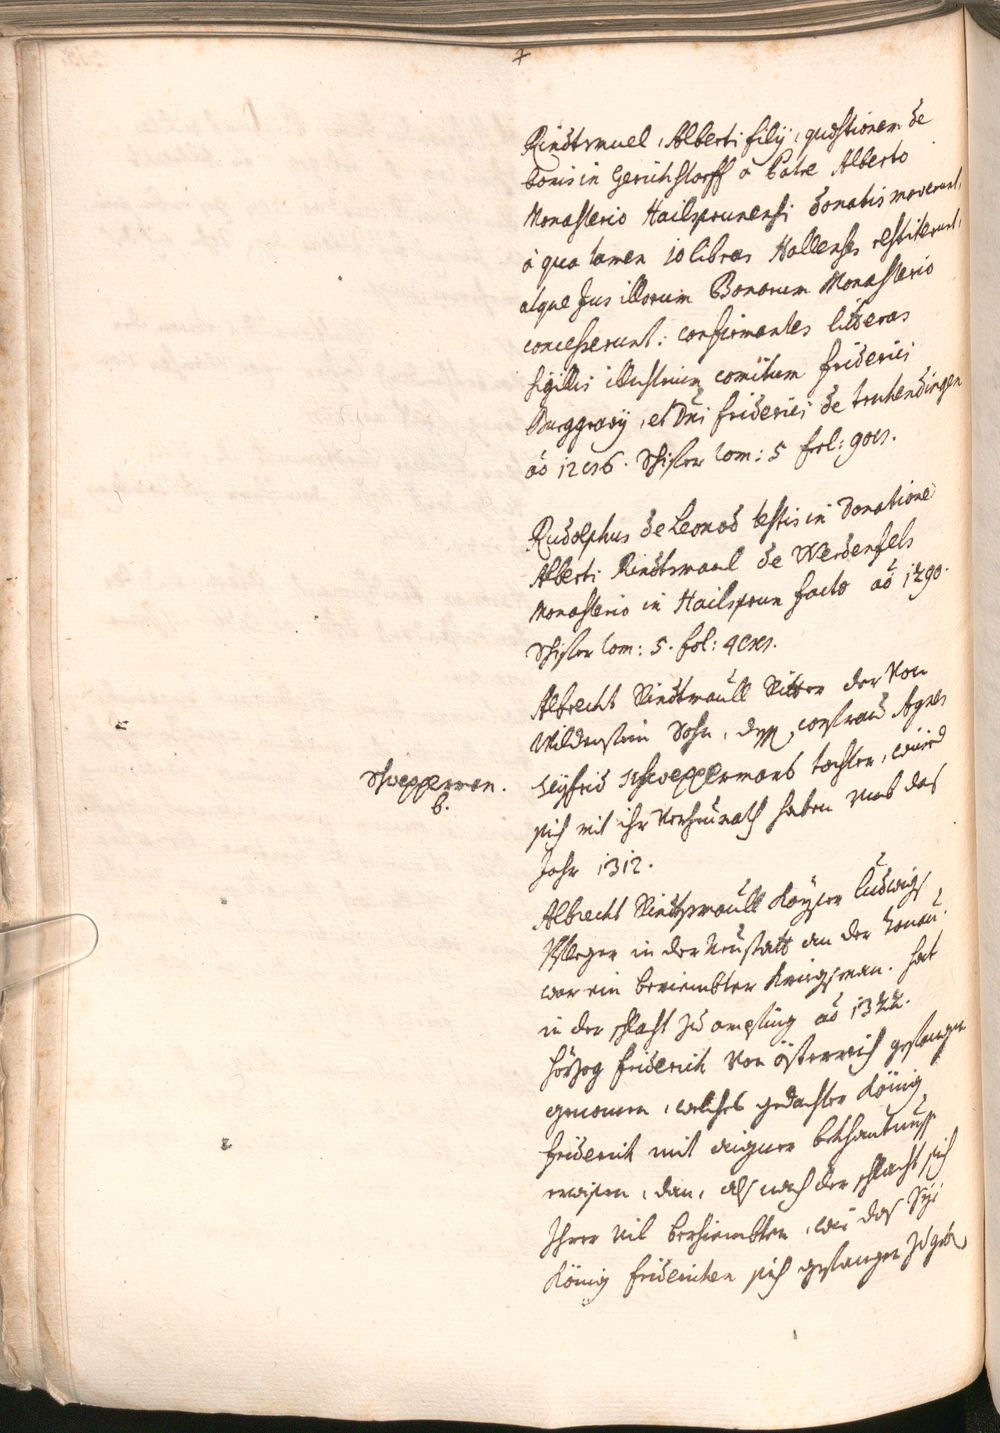 Rindtsmuel, Alberti filÿ, quæstionem de
bonis in Gerichstorff a Patre Alberto
Monasterio Hailsprunensi donatis moverunt,
à qua tamen 10 libras Hallenses restiterunt,
atque Jus illorum Bonorum Monasterio
concesserunt: confirmantes litteras
sigillis illustrium comitum friderici
Burggravÿ, et Dni friderici de truhendingen
aō Schifer tom: 5 fol:
Rudolphus de Leonrod testis in Donatione
Alberti Rindtsmaul de Werdenfels
Monasterio in Hailsprun facto aō 1290.
Schifer tom: 5. fol:
Albrecht Rindtmaull Ritter der Von
Wildenstein Sohn, Agnes
Seÿfrid Schweppermans tochter, würd
Schepperman.
b.
sich mit ihr Verheürath haben umb das
Jahr 1312.
Albrecht Rindtsmaull Kaÿser Ludwigs
Pfleger in der Neüstatt an der Donaü.
war ein beriembter Kriegsman. hat
in der schlacht zu ampfing aō 1322.
Hörzog friderich Von össterreich gefangen
genomen, welches gedachter König
friderich mit aigner bekhantnuss
erwisen, dan, als nach der schlacht sich
Ihrer vil beriembten, wie das Sÿe
König friderichen sich gefangen zu geben